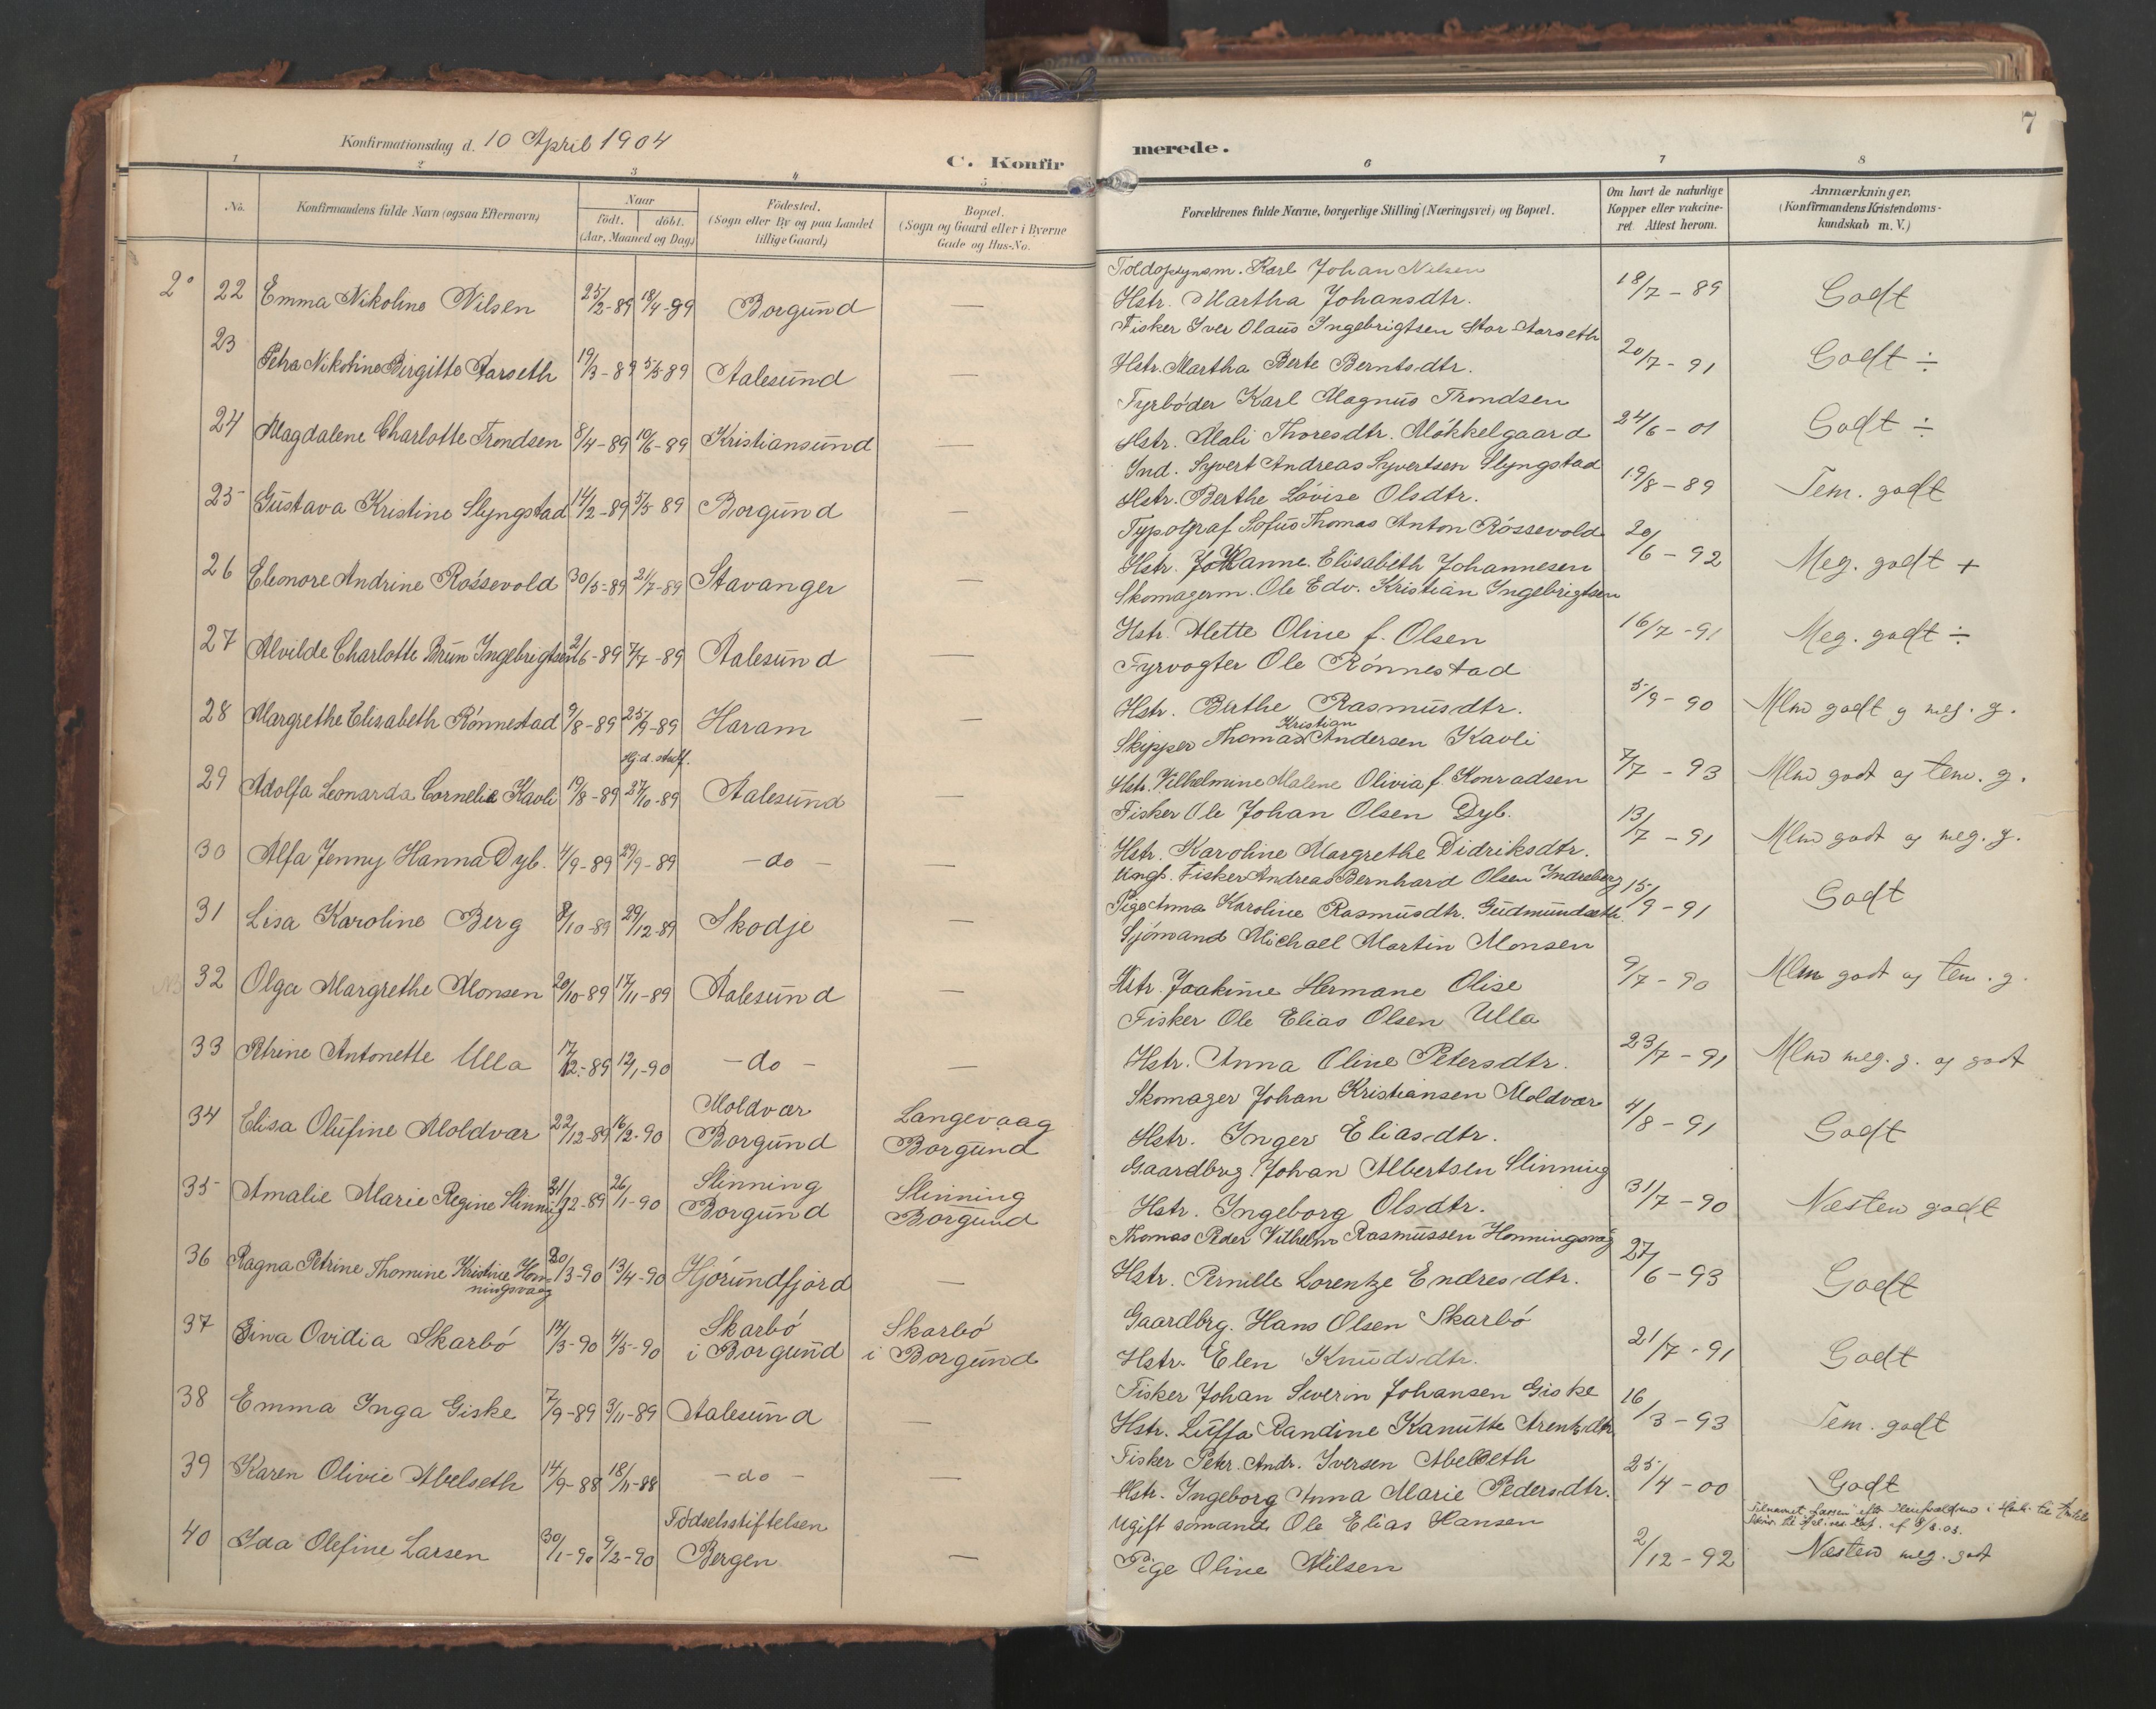 Konfirmationsdag d. 10 April 1904
C. Konfirmerede.
7
1 2 3 4 5 6 7 8
No.
Konfirmandens fulde Navn (ogsaa Efternavn)
Naar
födt. döbt.
(Aar, Maaned og Dag)
Födested.
(Sogn eller By og paa Landet
tillige Gaard)
Bopæl.
(Sogn og Gaard eller i Byerne
Gade og Hus-No.
Forældrenes fulde Navne, borgerlige Stilling (Næringsvei) og Bopæl.
Om havt de naturlige
Kopper eller vakcine-
ret. Attest herom.
Anmærkninger,
(Konfirmandens Kristendoms-
kundskab m. V.)
Toldopsynsm. Karl Johan Nilsen
2° 22 Emma Nikoline Nilsen 25/2-89 18/4-89 Borgund — Hstr. Martha Johansdtr. 18/7-89 Godt
Fisker Iver Olaus Ingebrigtsen Stor-Aarseth
23 Petra Nikoline Birgitte Aarseth 19/3-89 5/5-89 Aalesund — Hstr. Martha Berte Berntsdtr. 20/7-91 Godt ÷
Fyrbøder Karl Magnus Trondsen
24 Magdalene Charlotte Trondsen 8/4-89 10/6-89 Kristiansund — Hstr. Mali Thoresdtr. Møkkelgaard 24/6-01 Godt ÷
Ind. Syvert Andreas Syvertsen Slyngstad
25 Gustava Kristine Slyngstad 14/2-89 5/5 89 Borgund — Hstr. Berthe Lovise Olsdtr. 19/8-89 Tem. godt
Typograf Sofus Thomas Anton Røssevold
26 Elenore Andrine Røssevold 30/5-89 21/7-89 Stavanger — Hstr. Johanne Elisabeth Johannesen 20/6-92 Meg. godt +
Skomagerm. Ole Edv. Kristian Ingebrigtsen
27 Alvilde Charlotte Brun Ingebrigtsen 2/6-89 7/7-89 Aalesund — Hstr. Mette Oline f. Olsen 16/7-91 Meg. godt ÷
Fyrvogter Ole Rønnestad
28 Margrethe Elisabeth Rønnestad 9/8-89 25/9-89 Haram — Hstr. Berthe Rasmusdtr. 5/9-90 Mlm godt og meg. g.
Skipper Thomas Kristian Andersen Kavli
Hj.d. stadf.
29 Adolfa Leonarda Cornelia Kavli 19/8-89 27/10-89 Aalesund — Hstr. Vilhelmine Malene Olivia f. Konradsen 7/7-93 Mlm godt og tem. g.
Fisker Ole Johan Olsen Dyb.
30 Alfa Jenny Hanna Dyb. 4/9-89 29/9-89 - do - — Hstr. Karoline Margrethe Didriksdtr. 13/7-91 Mlm godt og meg. g.
Ungk. Fisker Andreas Bernhard Olsen Indreberg
31 Lisa Karoline Berg 8/10-89 29/12-89 Skodje — Pige Anna Karoline Rasmusdtr. Gudmundseth. 15/9-91 Godt
Sjømand Michael Martin Monsen
32 Olga Margrethe Monsen 20/10-89 17/11-89 Aalesund — Hstr. Joakime Hermane Olise 9/7-90 Mlm godt og tem. g.
Fisker Ole Elias Olsen Ulla
33 Petrine Antonette Ulla 17/12-89 12/1-90 - do - — Hstr. Anna Oline Petersdtr. 23/7-91 Mlm meg. g. og godt
Moldvær Langevaag Skomager Johan Kristiansen Moldvær
34 Elisa Olufine Moldvær 22/12-89 16/2-90 Borgund Borgund Hstr. Inger Eliasdtr. 4/8-91 Godt
Slinning Slinning Gaardbrg. Johan Albertsen Slinning
35 Amalie Marie Regine Slinning 31/12-89 26/1-90 Borgund Borgund Hstr. Ingeborg Olsdtr. 31/7-90 Næsten godt
Thomas Peder Vilhelm Rasmussen Honningsvåg
36 Ragna Petrine Thomine Kristine Hon- 20/3-90 13/4-90 Hjørundfjord — Hstr. Pernille Lorentze Endresdtr. 27/6-93 Godt
ningsvaag
Skarbö Skarbö Gaardbrg. Hans Olsen Skarbö
37 Sina Ovidia Skarbö 14/3-90 4/5-90 i Borgund i Borgund Hstr. Elen Knudsdtr. 21/7-91 Godt
Fisker Johan Severin Johansen Giske
38 Emma Inga Giske 7/9-89 3/11-89 Aalesund — Hstr. Luffa Randine Kanutte Arentsdtr. 16/3-93 Tem. godt
Fisker Peter Andr. Iversen Abelseth
39 Karen Olivie Abelseth 14/9-88 18/11-88 - do - Hstr. Ingeborg Anna Marie Pedersdtr. 25/4-00 Godt
Fødselsstiftelsen Ugift sømand Ole Elias Hansen
40 Ida Olefine Larsen 30/1-90 9/2-90 Bergen — Pige Oline Nilsen 2/12-92 Næsten meg. godt